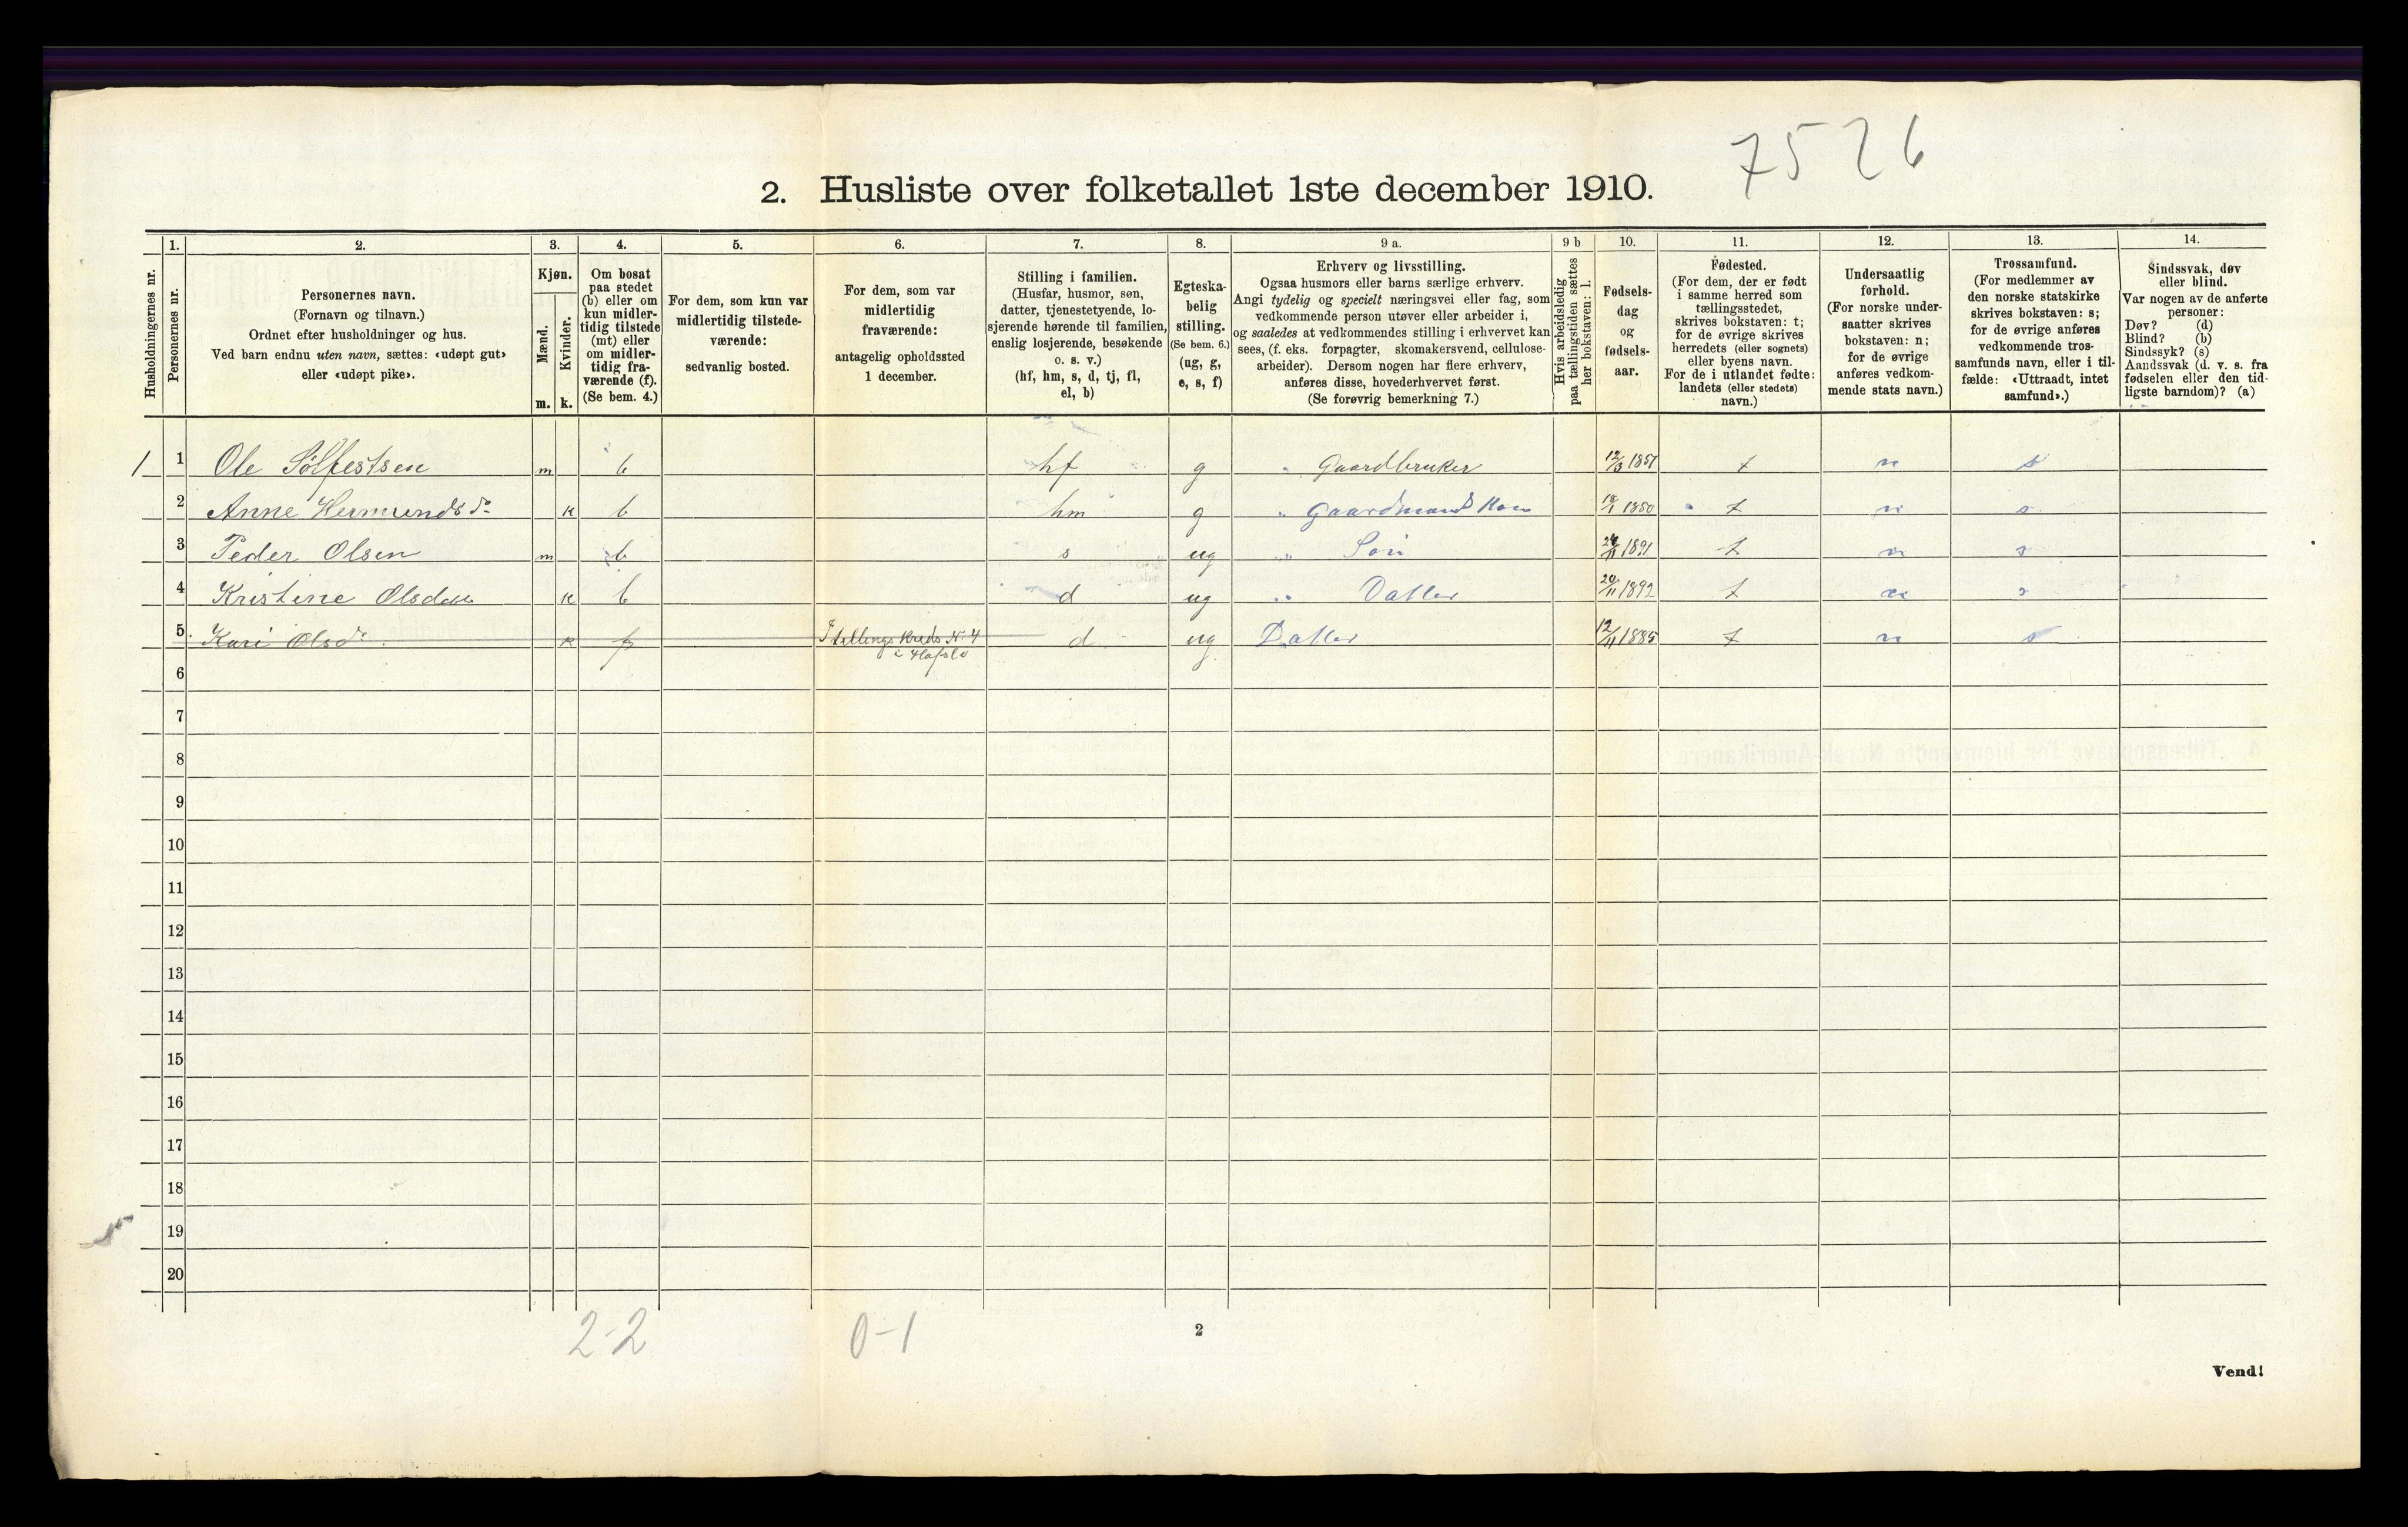 7526
2. Husliste over folketallet 1ste december 1910.
1. 2. 3. 4. 5. 6. 7. 8. 9 a. 9 b 10. 11. 12. 13. 14.
Husholdningernes nr.
Personernes nr.
Personernes navn.
(Fornavn og tilnavn.)
Ordnet efter husholdninger og hus.
Ved barn endnu uten navn, sættes: «udøpt gut»
eller «udøpt pike».
Kjøn.
Mænd.
Kvinder.
m. k.
Om bosat
paa stedet
(b) eller om
kun midler-
tidig tilstede
(mt) eller
om midler-
tidig fra-
værende (f).
(Se bem. 4.)
For dem, som kun var
midlertidig tilstede-
værende:
sedvanlig bosted.
For dem, som var
midlertidig
fraværende:
antagelig opholdssted
1 december.
Stilling i familien.
(Husfar, husmor, søn,
datter, tjenestetyende, lo-
sjerende hørende til familien,
enslig losjerende, besøkende
o. s. v.)
(hf, hm, s, d, tj, fl,
el, b)
Egteska-
belig
stilling.
(Se bem. 6.)
(ug, g,
e, s, f)
Erhverv og livsstilling.
Ogsaa husmors eller barns særlige erhverv.
Angi tydelig og specielt næringsvei eller fag, som
vedkommende person utøver eller arbeider i,
og saaledes at vedkommendes stilling i erhvervet kan
sees, (f. eks. forpagter, skomakersvend, cellulose-
arbeider). Dersom nogen har flere erhverv,
anføres disse, hovederhvervet først.
(Se forøvrig bemerkning 7.)
Hvis arbeidsledig
paa tællingstiden sættes
her bokstaven: l.
Fødsels-
dag
og
fødsels-
aar.
Fødested.
(For dem, der er født
i samme herred som
tællingsstedet,
skrives bokstaven: t;
for de øvrige skrives
herredets (eller sognets)
eller byens navn.
For de i utlandet fødte:
landets (eller stedets)
navn.)
Undersaatlig
forhold.
(For norske under-
saatter skrives
bokstaven: n;
for de øvrige
anføres vedkom-
mende stats navn.)
Trossamfund.
(For medlemmer av
den norske statskirke
skrives bokstaven: s;
for de øvrige anføres
vedkommende tros-
samfunds navn, eller i til-
fælde: «Uttraadt, intet
samfund».)
Sindssvak, døv
eller blind.
Var nogen av de anførte
personer:
Døv? (d)
Blind? (b)
Sindssyk? (s)
Aandssvak (d. v. s. fra
fødselen eller den tid-
ligste barndom)? (a)
1 1 Ole Sølfestsen m b hf g " Gaardbruker 12/3 1851 t n s
2 Anne Hermundsdr k b hm g " Gaardmands Kone 1850 t n s
3 Peder Olsen m b s ug " Søn 1891 t n s
4 Kristine Olsdatter k b d ug " Datter 20/11 1892 t n s
5 Kari Olsdr k f Itællings Kreds N. 4
i Hafslo d ug Datter 12/11 1885 t n s
6
7
8
9
10
11
12
13
14
15
16
17
18
19
20
2-2 0-1
2
Vend!